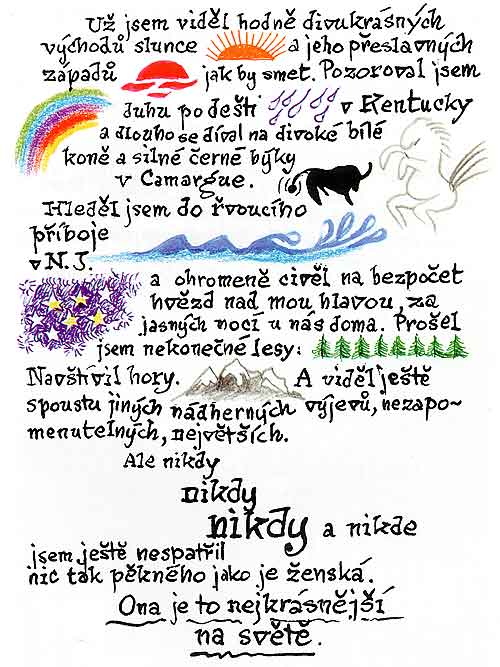 Už jsem viděl hodně divukrásných
východů slunce a jeho přeslavných
západů jak by smet. Pozoroval jsem
duhu po dešti v Kentucky
a dlouho se díval na divoké bílé
koně a silné černé býky
v Camargue.
Hleděl jsem do řvoucího
příboje
v N. J.
a ohromeně civěl na bezpočet
hvězd nad mou hlavou, za
jasných nocí u nás doma. Prošel
jsem nekonečné lesy:
Navštívil hory. A viděl ještě
spoustu jiných nádherných výjevů, nezapo-
menutelných, největších.
Ale nikdy
nikdy
nikdy a nikde
jsem ještě nespatřil
nic tak pěkného jako je ženská.
Ona je to nejkrásnější
na světě.